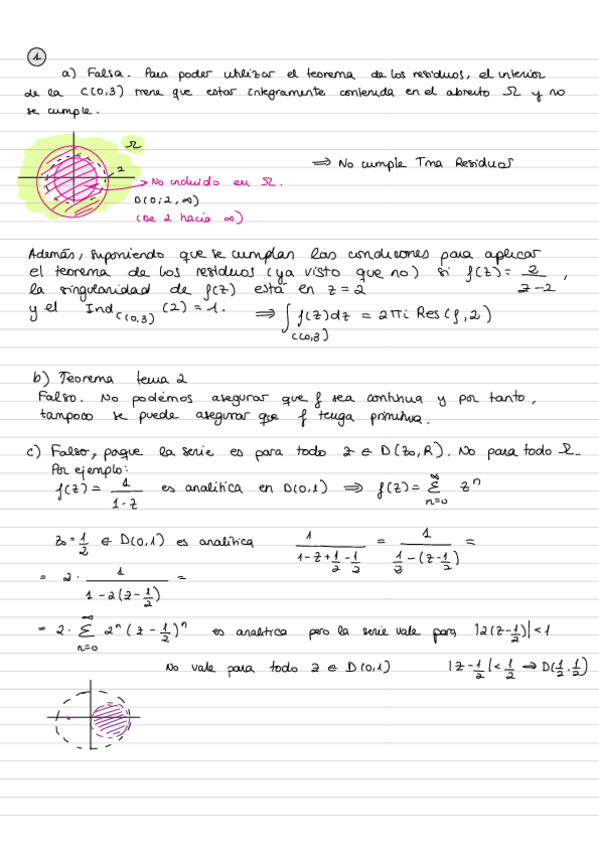 1
a) Falsa. Para poder utilizar el teorema de los residuos, el interior
de la C(0,3) tiene que estar íntegramente contenida en el abierto Ω y no
se cumple.
Ω
2
→ No incluido en Ω.
D(0; 2, ∞)
(De 2 hacia ∞)
⇒ No cumple Tma Residuos
Además, suponiendo que se cumplan las condiciones para aplicar
el teorema de los residuos (ya visto que no) si f(z) = 2/(z-2),
la singularidad de f(z) está en z = 2
y el Ind_C(0,3) (2) = 1. ⇒ ∫_C(0,3) f(z)dz = 2πi Res(f,2)
b) Teorema tema 2
Falso. No podemos asegurar que f sea continua y por tanto,
tampoco se puede asegurar que f tenga primitiva.
c) Falso, porque la serie es para todo z ∈ D(z₀,R). No para todo Ω.
Por ejemplo:
f(z) = 1/(1-z) es analítica en D(0,1) ⇒ f(z) = Σ_{n=0}^∞ z^n
z₀ = 1/2 ∈ D(0,1) es analítica 1/(1-z+1/2-1/2) = 1/(1/2-(z-1/2)) =
= 2· 1/(1-2(z-1/2)) =
= 2· Σ_{n=0}^∞ 2^n (z-1/2)^n es analítica pero la serie vale para |2(z-1/2)|<1
No vale para todo z ∈ D(0,1) |z-1/2|<1/2 ⇒ D(1/2,1/2)